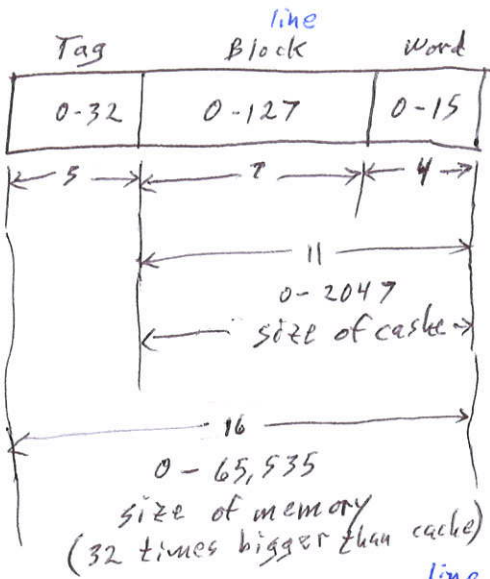 line
Tag Block Word
0-32 0-127 0-15
5 7 4
11
0-2047
size of cashe
16
0-65,535
size of memory
(32 times bigger than cache)
line